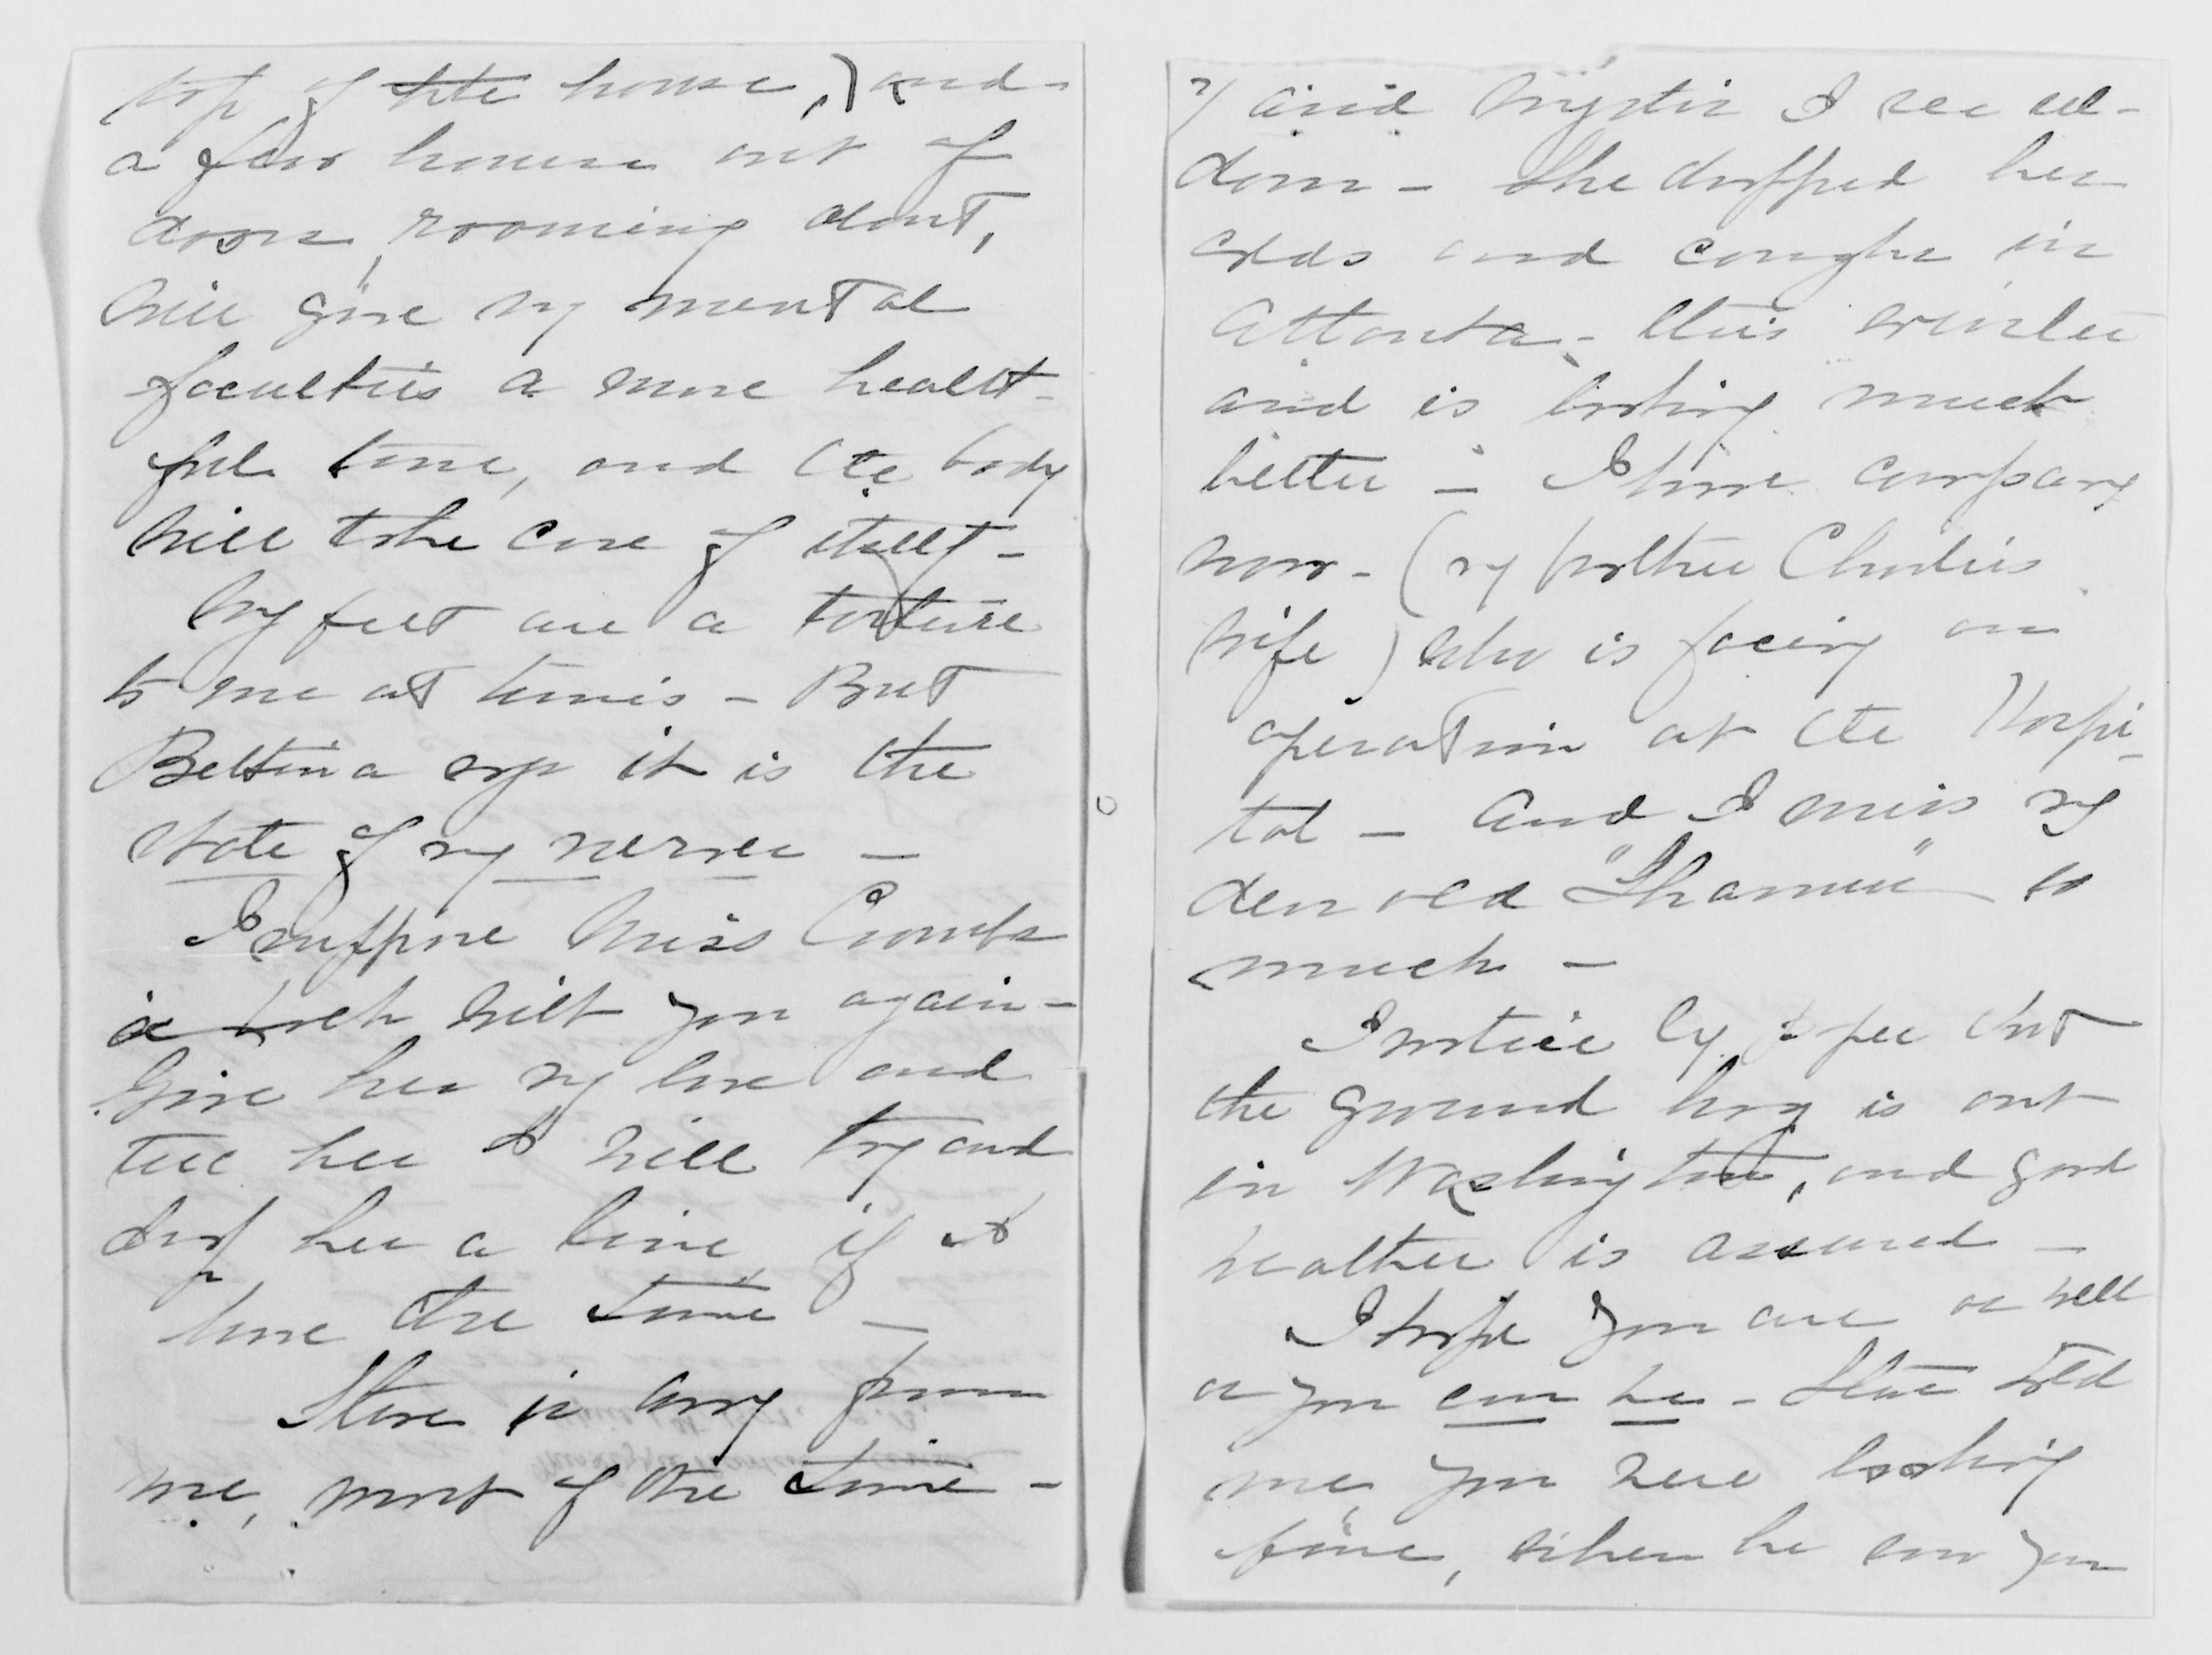 top of the house,) and
a few hours out of
doors, roaming about,
will give my mental
faculties a more health-
ful tone, and the body
will take care of itself -
My feet are a torture
to me at times - But
Bettina says it is the
state of my nerves -
I suppose Miss Coombs
is back with you again -
Give her my love and
tell her I will try and
drop her a line, if I
have the time -
Steve is away from
me, most of the time -
and I see sel-
dom - She dropped her
colds and coughs in
Atlanta - this winter
and is looking much
better - I have company
now - (my brother Charlie's
wife) who is facing an
operation at the Hospi-
tal - And I miss my
dear old " " so
much -
I notice by paper that
the ground hog is out
in Washington, and good
weather is assured -
I hope you are as well
as you can be - Steve told
me you were looking
fine, when he saw you